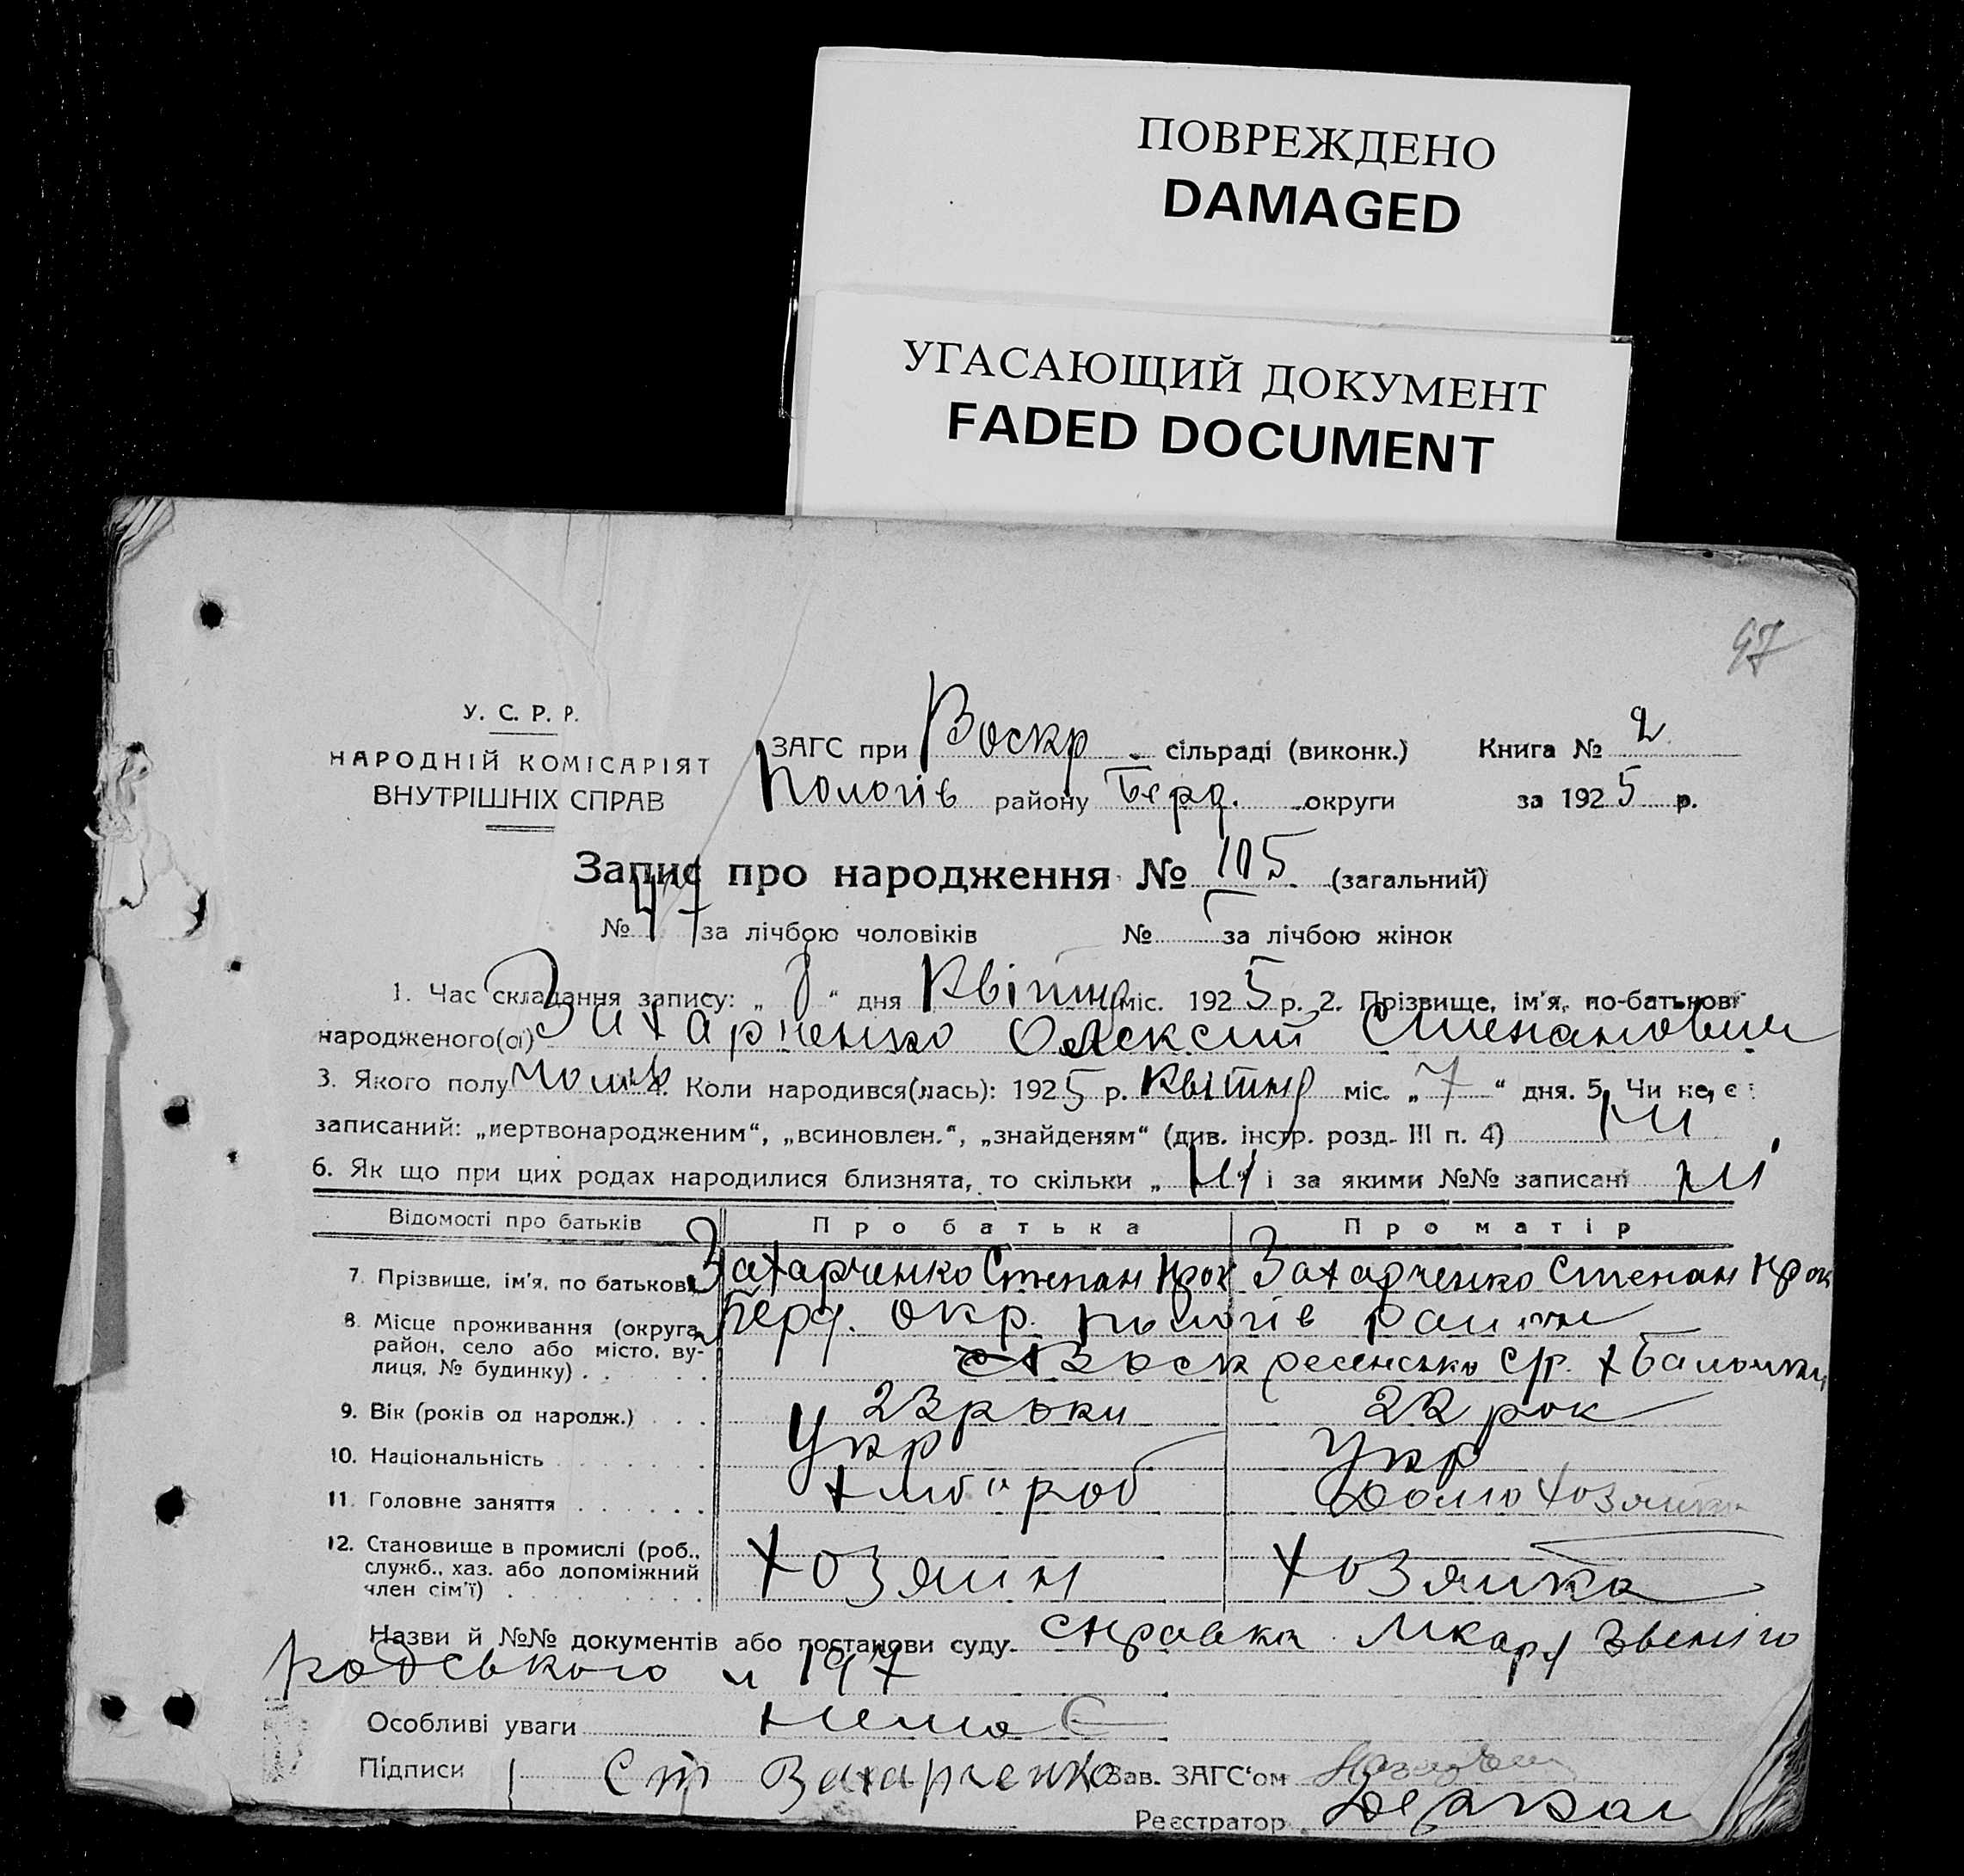 ПОВРЕЖДЕНО
DAMAGED
УГАСАЮЩИЙ ДОКУМЕНТ
FADED DOCUMENT
97
У. С. Р. Р.
НАРОДНІЙ КОМІСАРІЯТ
ВНУТРІШНІХ СПРАВ
ЗАГС при Воскр. сільраді (виконк.) Книга № 2
Пологів району Берд. округи за 1925 р.
Запис про народження № 105 (загальний)
№ 47 за лічбою чоловіків № за лічбою жінок
1. Час складання запису: „8“ дня Квітня міс. 1925 р. 2. Прізвище, ім'я, по-батькові
народженого(ої) Захарченко Олексій Степанович
3. Якого полу чолов 4. Коли народився(лась): 1925 р. квітня міс. „7“ дня. 5. Чи не є
записаний: „мертвонародженим“, „всиновлен.“, „знайденям“ (див. інстр. розд. III п. 4) ні
6. Як що при цих родах народилися близнята, то скільки „ні“ і за якими №№ записані ні
Відомості про батьків Про батька Про матір
7. Прізвище, ім'я, по батькові Захарченко Степан Прок Захарченко Степан Прок
8. Місце проживання (округа, район, село або місто, вулиця, № будинку) Берд. окр. Пологів район
Воскресенська с/р. х Балочки
9. Вік (років од народж.) 23 роки 22 рок
10. Національність Укр Укр
11. Головне заняття хлібороб Домохозяйка
12. Становище в промислі (роб., служб., хаз. або допоміжний член сім'ї) хозяин хозяйка
Назви й №№ документів або постанови суду. справка лікаря Звеніго
родського 197
Особливі уваги немає
Підписи Ст Захарченко Зав. ЗАГС'ом
Реєстратор Деркач